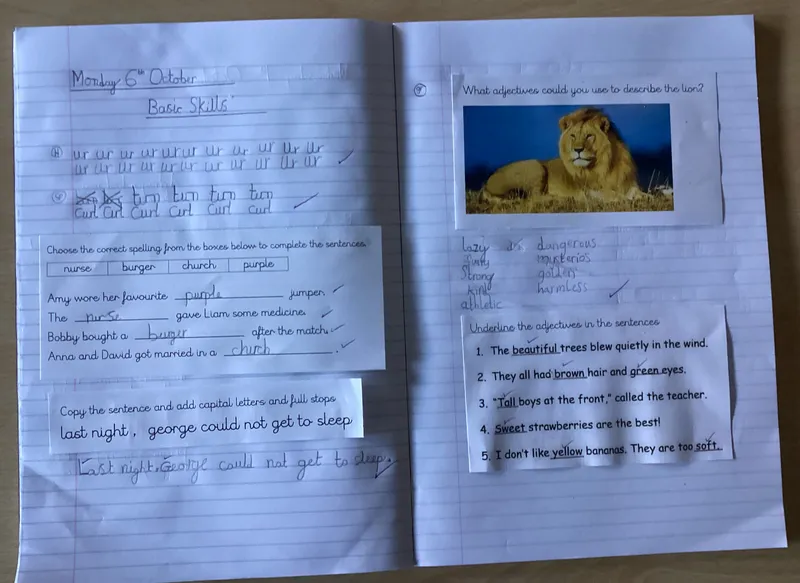 Monday 6th October
Basic Skills
ur ur ur ur ur ur ur ur ur ur ur
ur ur ur ur ur ur ur ur ur ur ur
turn turn turn turn
Curl Curl Curl Curl Curl Curl
Choose the correct spelling from the boxes below to complete the sentences.
nurse burger church purple
Amy wore her favourite purple jumper.
The nurse gave Liam some medicine.
Bobby bought a burger after the match.
Anna and David got married in a church.
Copy the sentence and add capital letters and full stops
last night, george could not get to sleep
Last night, George could not get to sleep.
What adjectives could you use to describe the lion?
lazy dangerous
mysterios
Strong golden
kind harmless
athletic
Underline the adjectives in the sentences
1. The beautiful trees blew quietly in the wind.
2. They all had brown hair and green eyes.
3. "Tall boys at the front," called the teacher.
4. Sweet strawberries are the best!
5. I don't like yellow bananas. They are too soft.